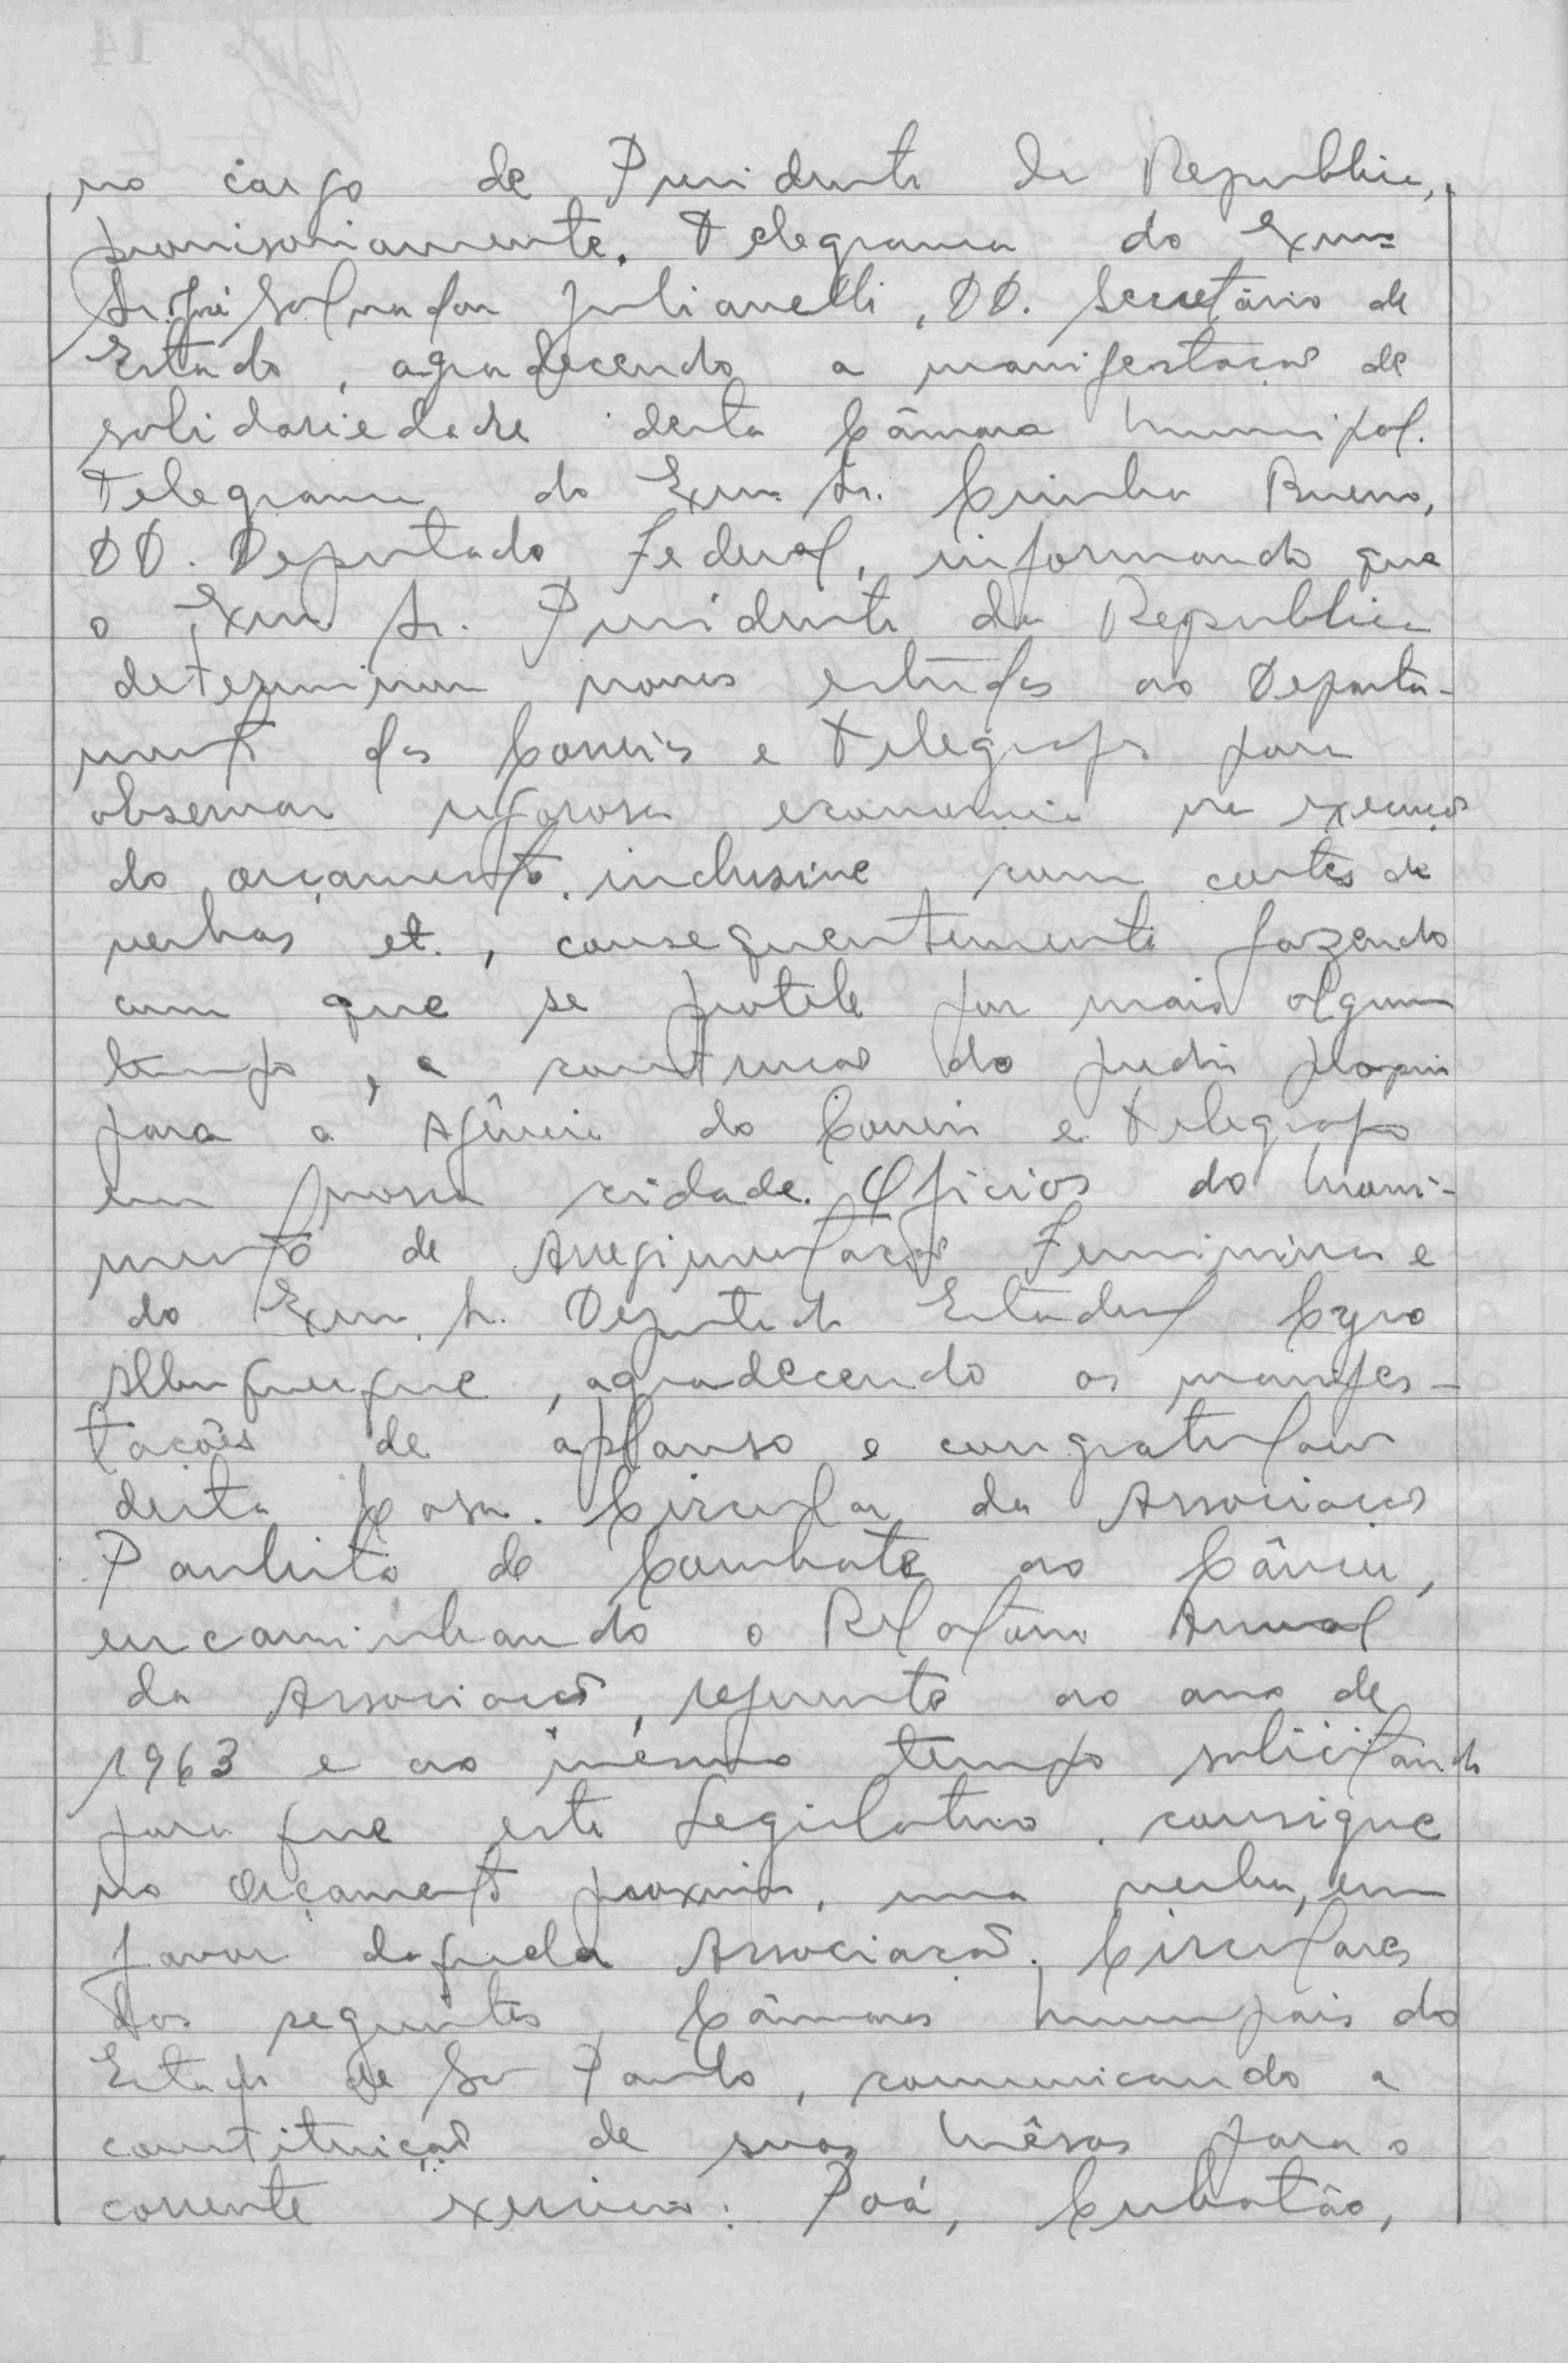 no cargo de Presidente da Republica,
provisoriamente. Telegrama do Exmo
Sr. José Salvador Julianelli, DD. Secretário de
Estado, agradecendo a manifestação de
solidariedade desta Câmara Municipal.
Telegrama do Exmo Sr. Cunha Bueno,
DD. Deputado Federal, informando que
o Exmo Sr. Presidente da Republica
determinou novos estudos ao Departa-
mento dos Correios e Telegrafos para
observar rigorosa economia na execução
do orçamento, inclusive com cortes de
verbas et., consequentemente fazendo
com que se protele por mais algum
tempo, a construcão do predio proprio
para a Agência do Correio e Telegrafo
em nossa cidade. Oficios do Movi-
mento de Arregimentação Feminina e
do Exmo. Sr. Deputado Estadual Cyro
Albuquerque, agradecendo as manifes-
tacões de aplauso e congratulacão
desta Casa. Circular da Associacão
Paulista de Combate ao Câncer,
encaminhando o Relatorio Anual
da Associacão, referente ao ano de
1963 e ao mesmo tempo solicitando
para que este Legislativo, consigne
no Orçamento proximo, uma verba, em
favor daquela Associacão. Circulares
das seguintes Câmaras Municipais do
Estado de São Paulo, comunicando a
constituiçao de suas Mêsas para o
corrente exercicio: Poá, Cubatão,